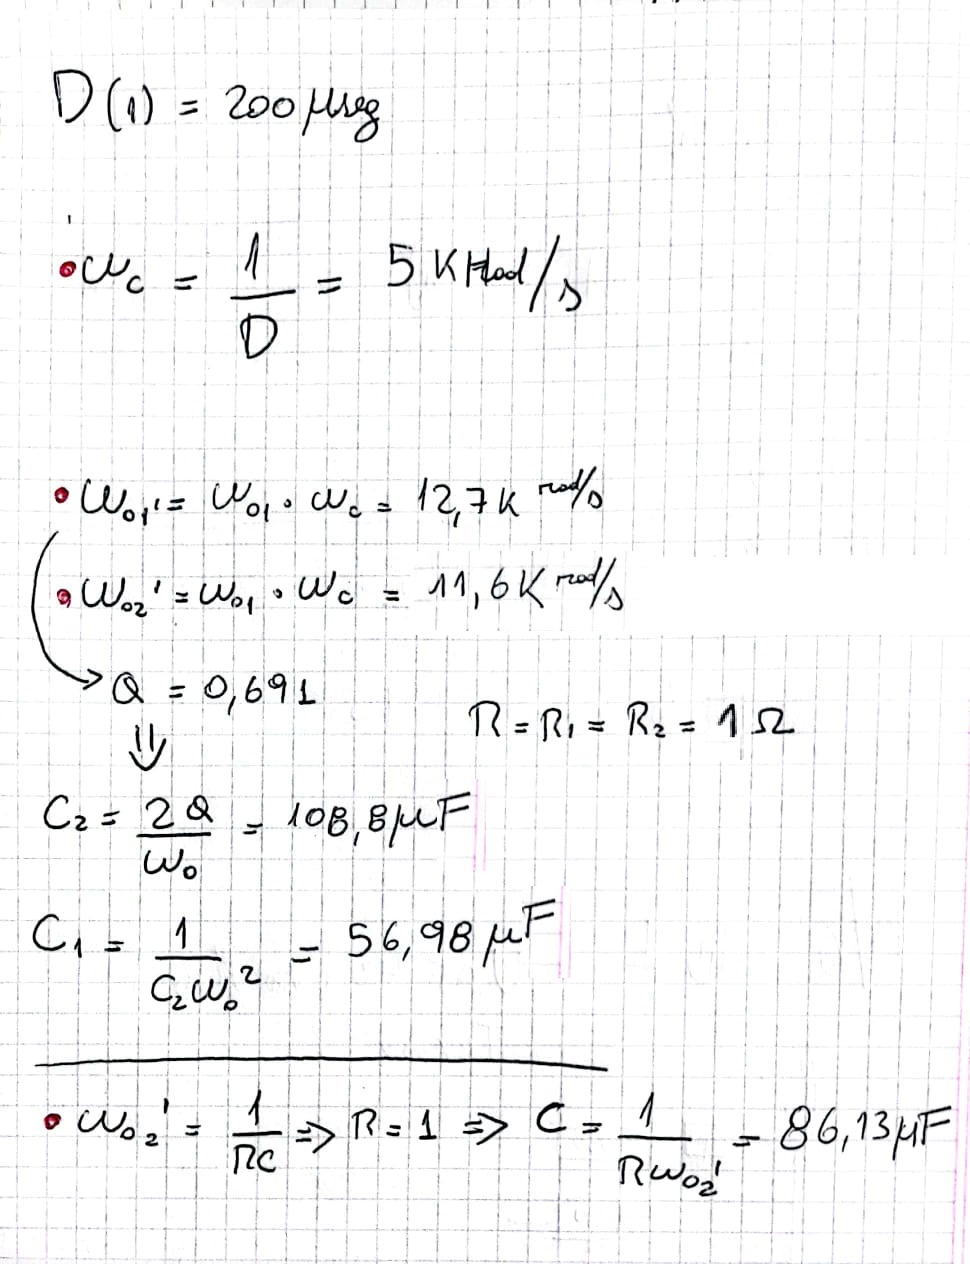 D(1) = 200 μseg
• ωc = 1/D = 5 KRad/s
• ωo1' = ωo1 · ωc = 12,7K rad/s
• ωo2' = ωo1 · ωc = 11,6K rad/s
Q = 0,691
R = R1 = R2 = 1 Ω
⇓
C2 = 2Q/ωo = 108,8 μF
C1 = 1/C2ωo² = 56,98 μF
• ωo2' = 1/RC ⇒ R = 1 ⇒ C = 1/Rωo2' = 86,13 μF